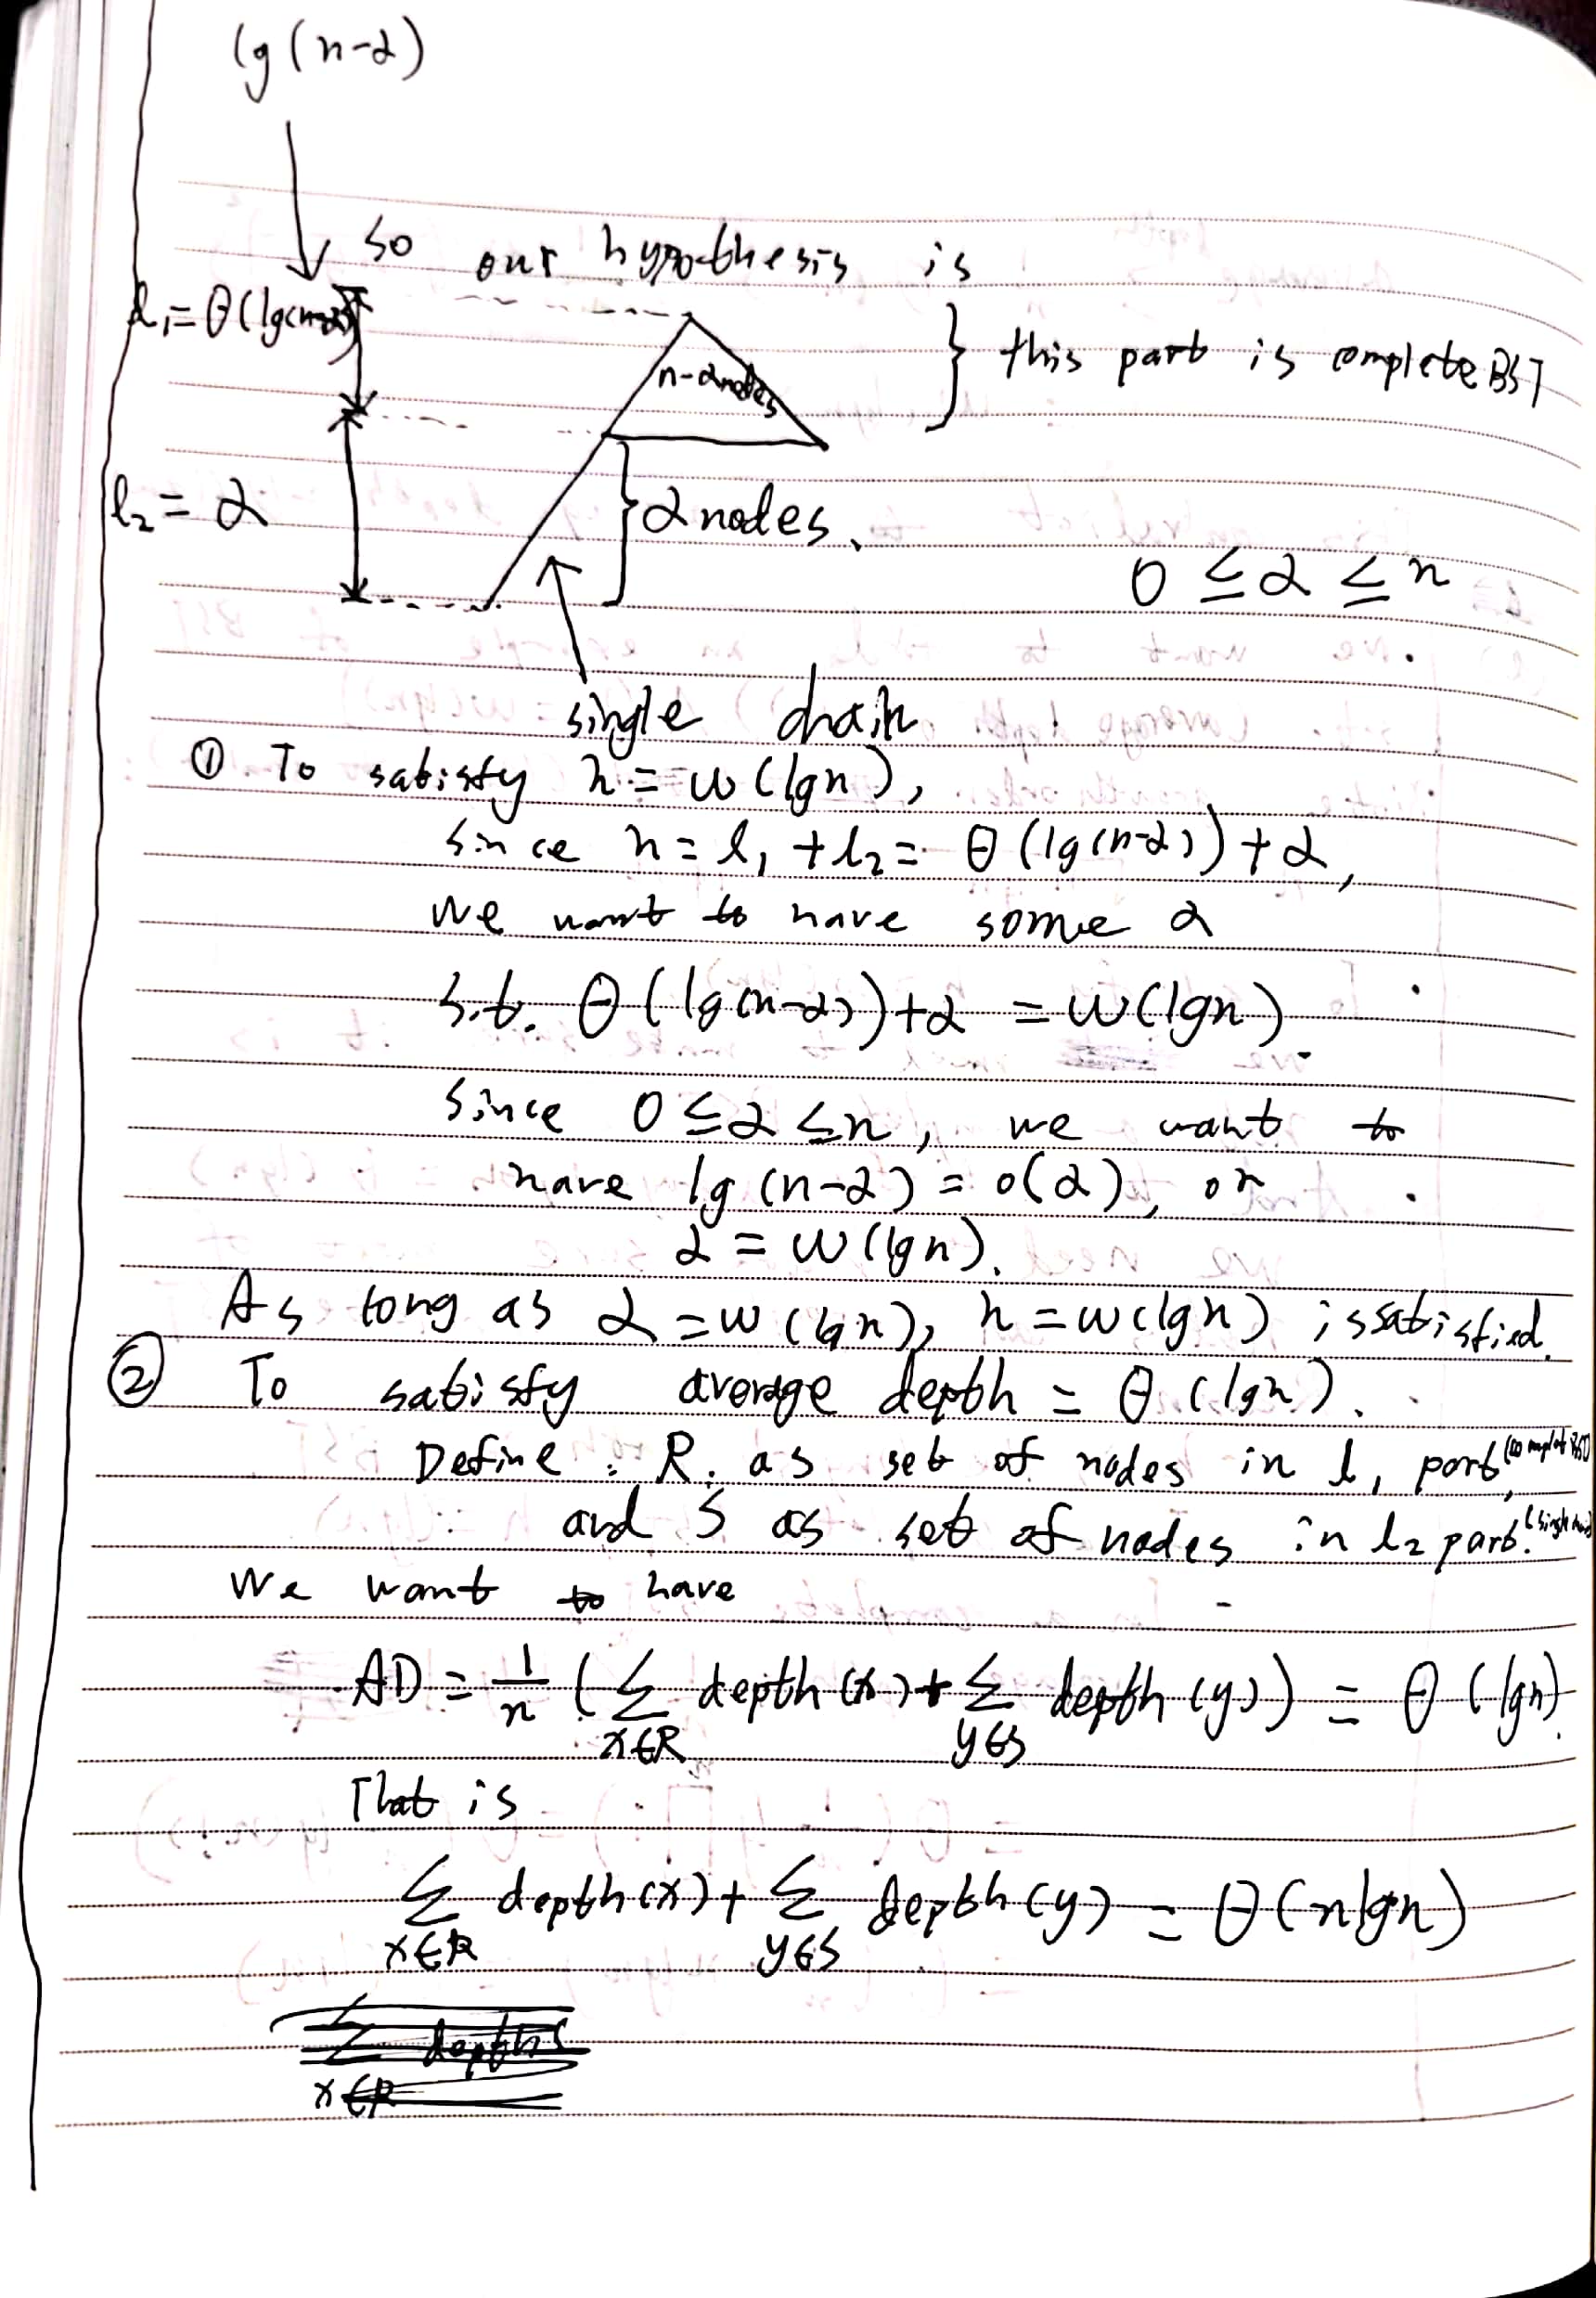 lg(n-α)
so our hypothesis is
l₁=Θ(lg(n-α))
n-α nodes
} this part is complete BST
l₂ = α
}α nodes.
0 ≤ α ≤ n
single chain
① To satisfy h = ω(lgn),
since h = l₁ + l₂ = Θ(lg(n-α)) + α,
we want to have some α
s.t. Θ(lg(n-α))+α = ω(lgn).
Since 0 ≤ α ≤ n, we want to
have lg(n-α) = o(α), or
α = ω(lgn).
As long as α = ω(lgn), h = ω(lgn) is satisfied.
② To satisfy average depth = Θ(lgn).
Define: R. as set of nodes in l₁ part, (complete BST)
and S as set of nodes in l₂ part.
We want to have
AD = 1/n (Σ depth(x) + Σ depth(y)) = Θ(lgn).
x∈R y∈S
That is
Σ depth(x) + Σ depth(y) = Θ(nlgn)
x∈R y∈S